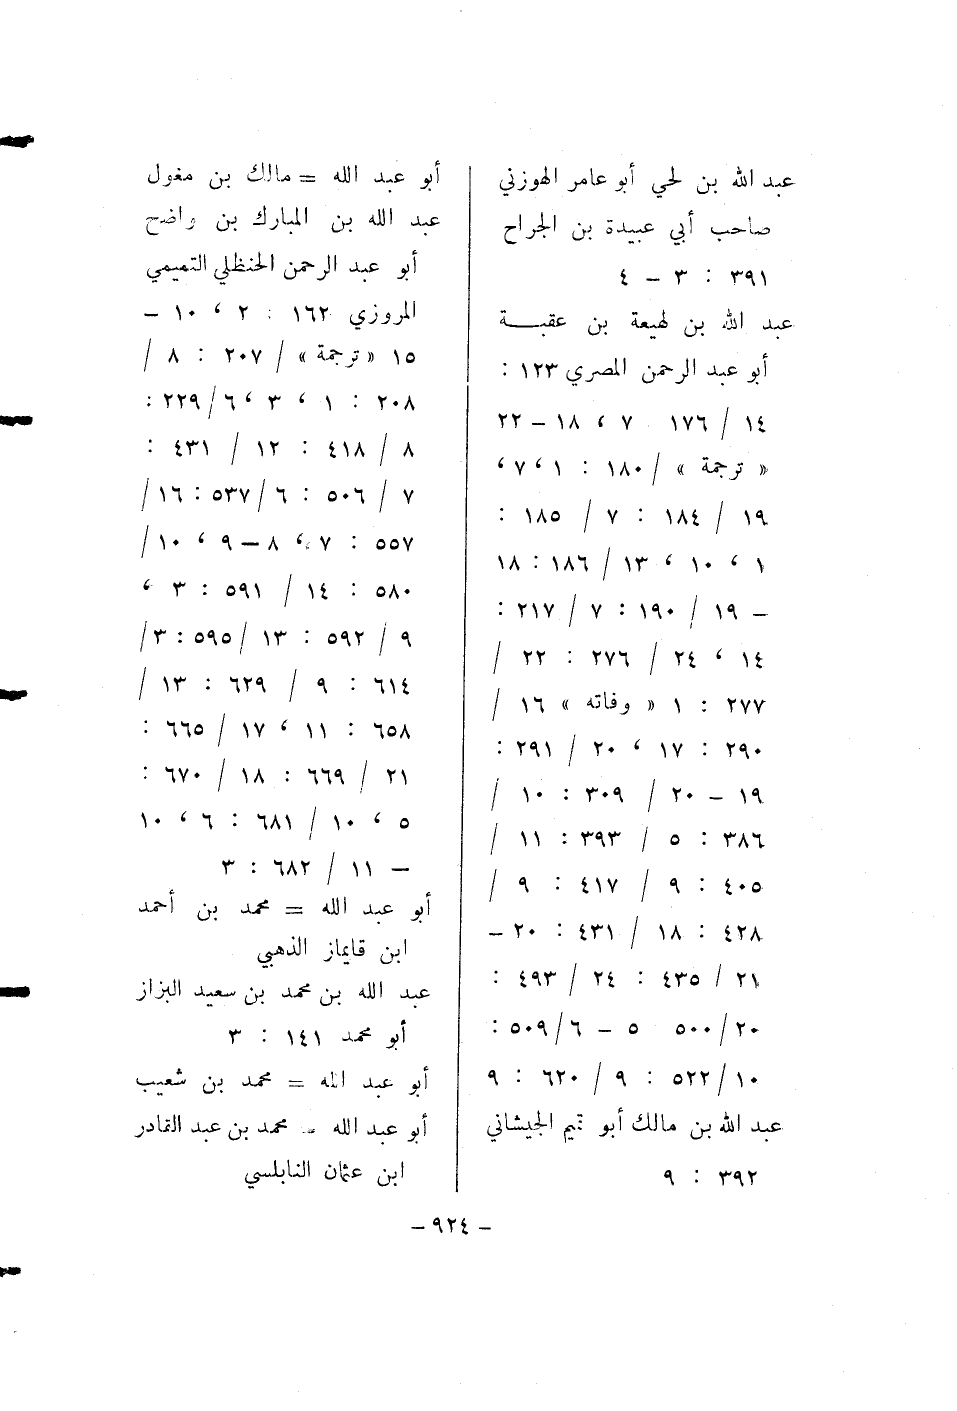 عبد الله بن لحي أبو عامر الهوزني
صاحب أبي عبيدة بن الجراح
٣٩١ : ٣ – ٤
عبد الله بن لهيعة بن عقبة
أبو عبد الرحمن المصري ١٢٣ :
١٤ / ١٧٦ ٧ ، ١٨ – ٢٢
« ترجمة » / ١٨٠ : ١ ، ٧ ،
١٩ / ١٨٤ : ٧ / ١٨٥ :
١ ، ١٠ ، ١٣ / ١٨٦ : ١٨
– ١٩ / ١٩٠ : ٧ / ٢١٧ :
١٤ ، ٢٤ / ٢٧٦ : ٢٢ /
٢٧٧ : ١ « وفاته » ١٦ /
٢٩٠ : ١٧ ، ٢٠ / ٢٩١ :
١٩ – ٢٠ / ٣٠٩ : ١٠ /
٣٨٦ : ٥ / ٣٩٣ : ١١ /
٤٠٥ : ٩ / ٤١٧ : ٩ /
٤٢٨ : ١٨ / ٤٣١ : ٢٠ –
٢١ / ٤٣٥ : ٢٤ / ٤٩٣ :
٢٠ / ٥٠٠ ٥ – ٦ / ٥٠٩ :
١٠ / ٥٢٢ : ٩ / ٦٢٠ : ٩
عبد الله بن مالك أبو تميم الجيشاني
٣٩٢ : ٩
أبو عبد الله = مالك بن مغول
عبد الله بن المبارك بن واضح
أبو عبد الرحمن الحنظلي التميمي
المروزي ١٦٢ : ٢ ، ١٠ –
١٥ « ترجمة » / ٢٠٧ : ٨ /
٢٠٨ : ١ ، ٣ ، ٦ / ٢٢٩ :
٨ / ٤١٨ : ١٢ / ٤٣١ :
٧ / ٥٠٦ : ٦ / ٥٣٧ : ١٦ /
٥٥٧ : ٧ ، ٨ – ٩ ، ١٠ /
٥٨٠ : ١٤ / ٥٩١ : ٣ ،
٩ / ٥٩٢ : ١٣ / ٥٩٥ : ٣ /
٦١٤ : ٩ / ٦٢٩ : ١٣ /
٦٥٨ : ١١ ، ١٧ / ٦٦٥ :
٢١ / ٦٦٩ : ١٨ / ٦٧٠ :
٥ ، ١٠ / ٦٨١ : ٦ ، ١٠
– ١١ / ٦٨٢ : ٣
أبو عبد الله = محمد بن أحمد
ابن قايماز الذهبي
عبد الله بن محمد بن سعيد البزاز
أبو محمد ١٤١ : ٣
أبو عبد الله = محمد بن شعيب
أبو عبد الله = محمد بن عبد القادر
ابن عثمان النابلسي
– ٩٢٤ –